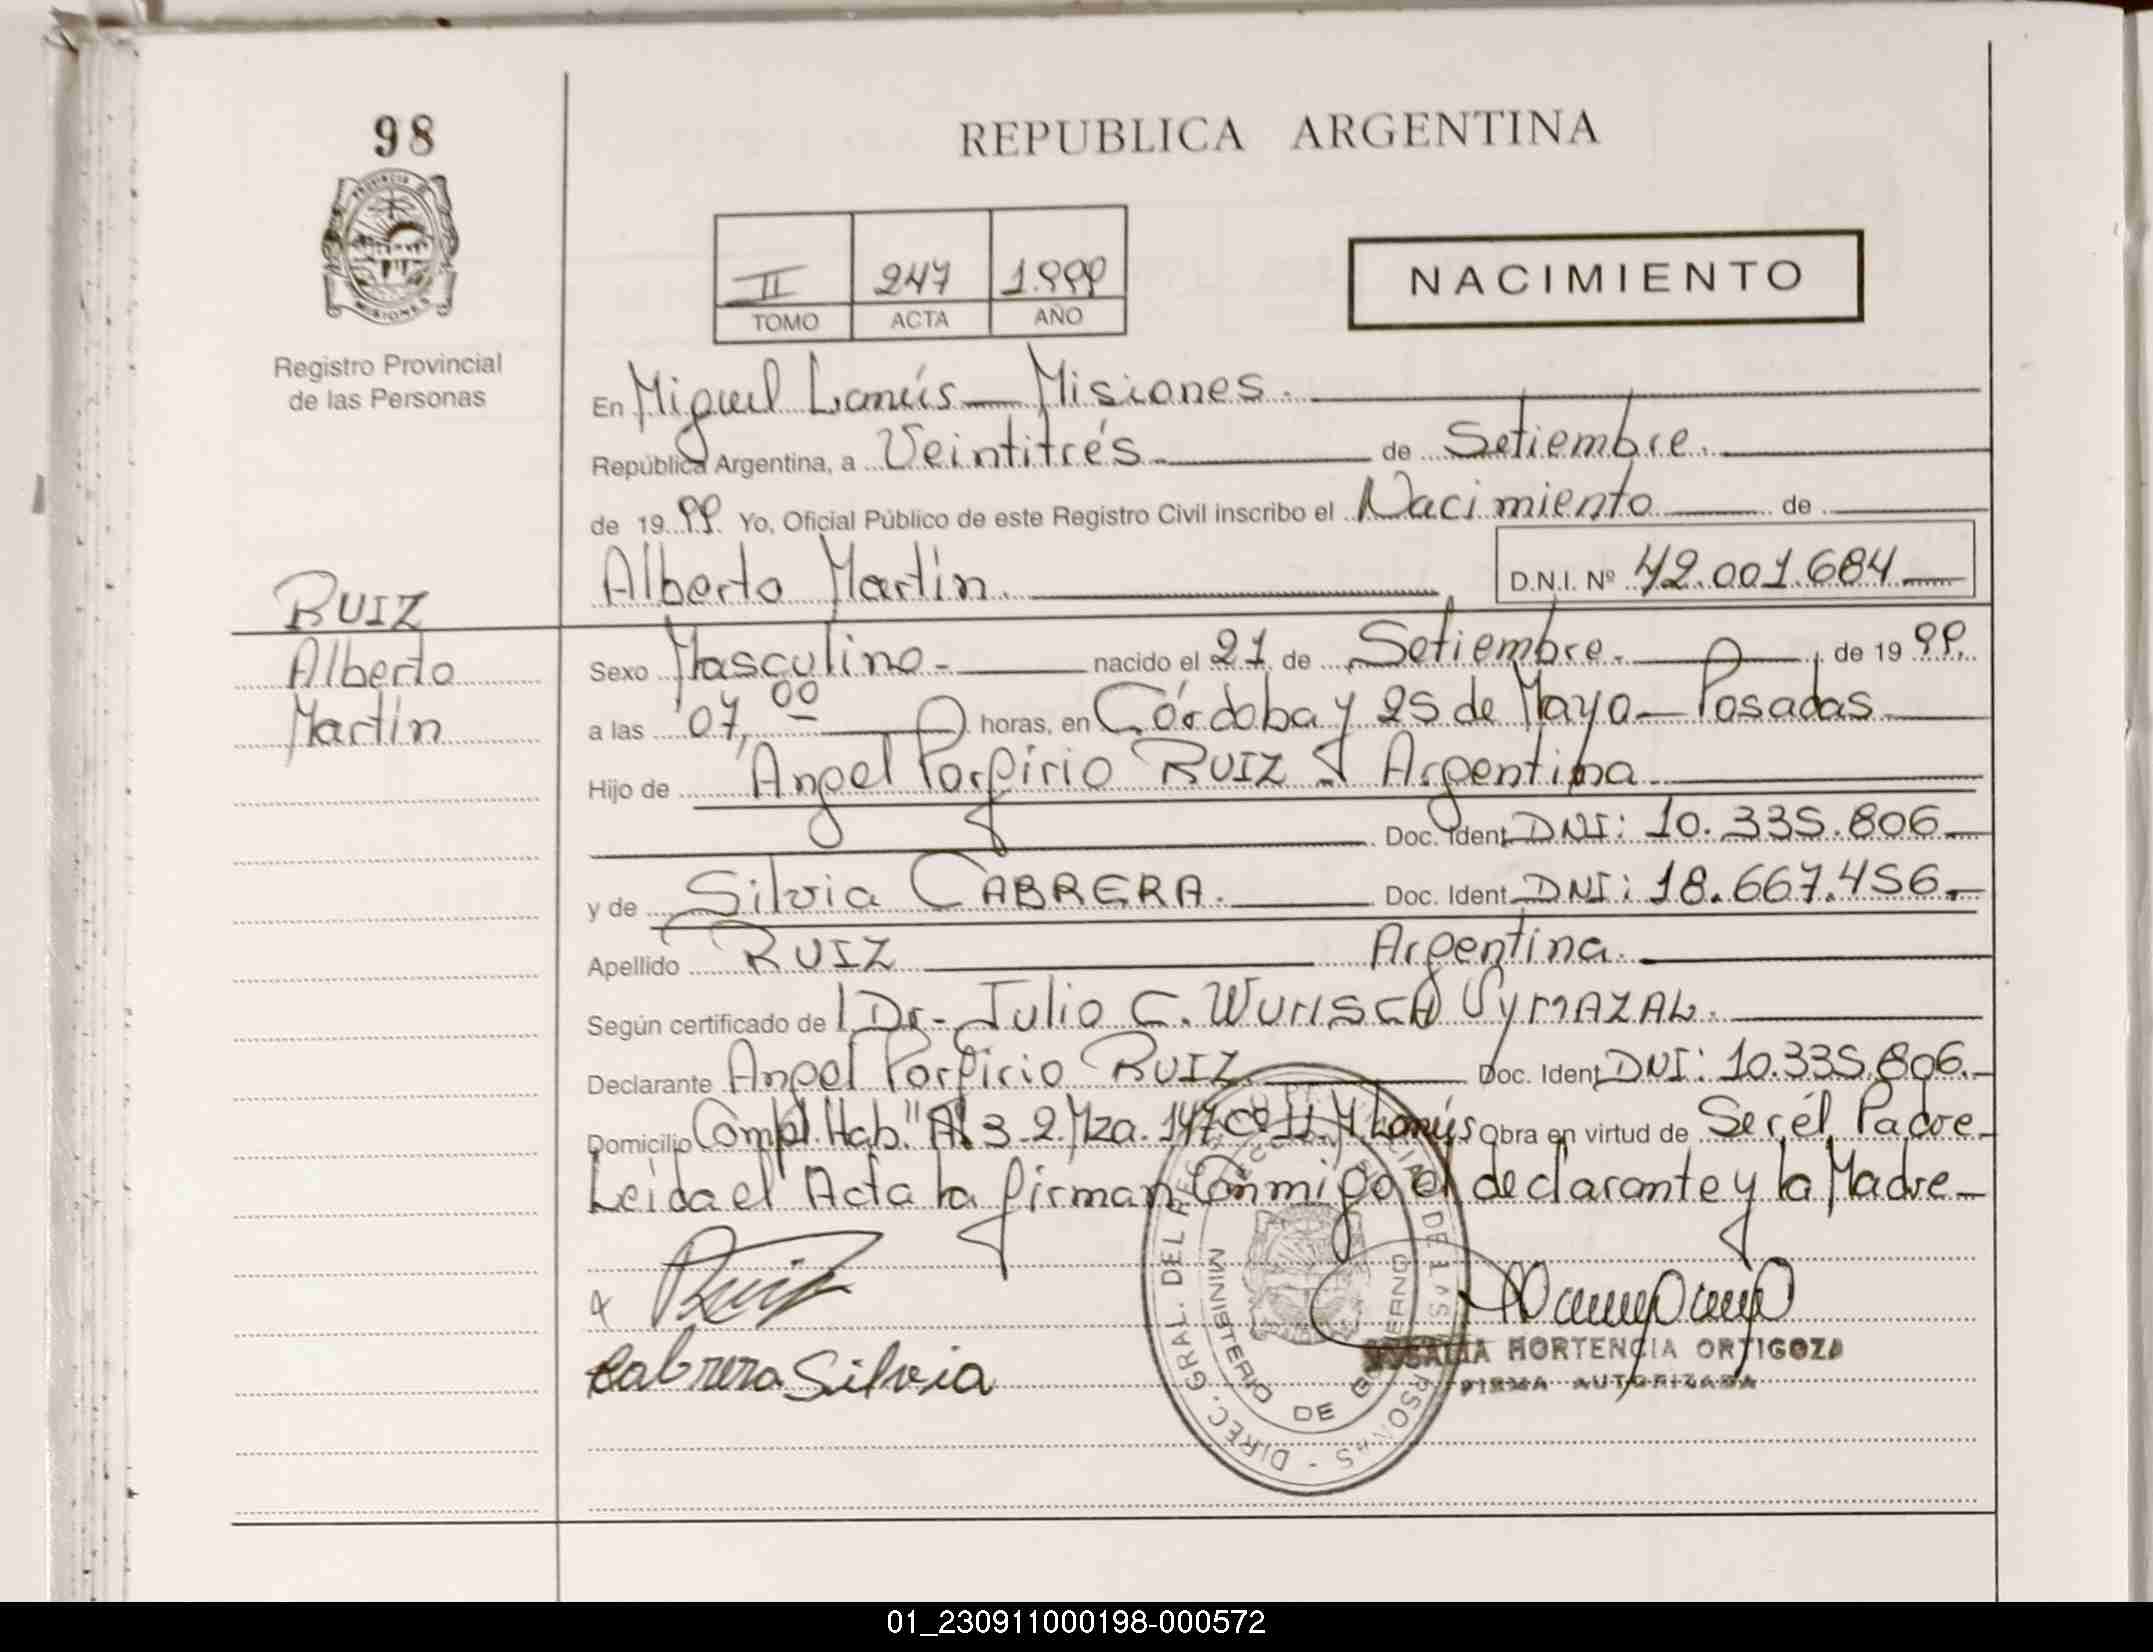 98
REPUBLICA ARGENTINA
PROVINCIA DE MISIONES
Registro Provincial
de las Personas
II 247 1.999
TOMO ACTA AÑO
NACIMIENTO
En Miguel Lanús — Misiones.
República Argentina, a Veintitrés de Setiembre.
de 1999. Yo, Oficial Público de este Registro Civil inscribo el Nacimiento de
Alberto Martin. D.N.I. Nº 42.001.684
RUIZ
Alberto
Martin
Sexo Masculino - nacido el 21 de Setiembre. de 1999.
a las 07,00 horas, en Córdoba y 25 de Mayo — Posadas
Hijo de Angel Porfirio RUIZ - Argentina
Doc. Ident DNI: 10.335.806
y de Silvia CABRERA. Doc. Ident DNI: 18.667.456.
Apellido RUIZ Argentina.
Según certificado de Dr. Julio C. WUNSCH VYMAZAL.
Declarante Angel Porfirio RUIZ. Doc. Ident DNI: 10.335.806.
Domicilio Compl. Hab. "A" 3-2. Mza. 147 Cº 11. M. Lanús Obra en virtud de Ser él Padre
Leida el Acta la firman Conmigo el declarante y la Madre
Ruiz
Cabrera Silvia
DIREC. GRAL. DEL DE LAS PERSONAS
MINISTERIO DE GOBIERNO
HORTENCIA ORTIGOZA
FIRMA AUTORIZADA
01_230911000198-000572